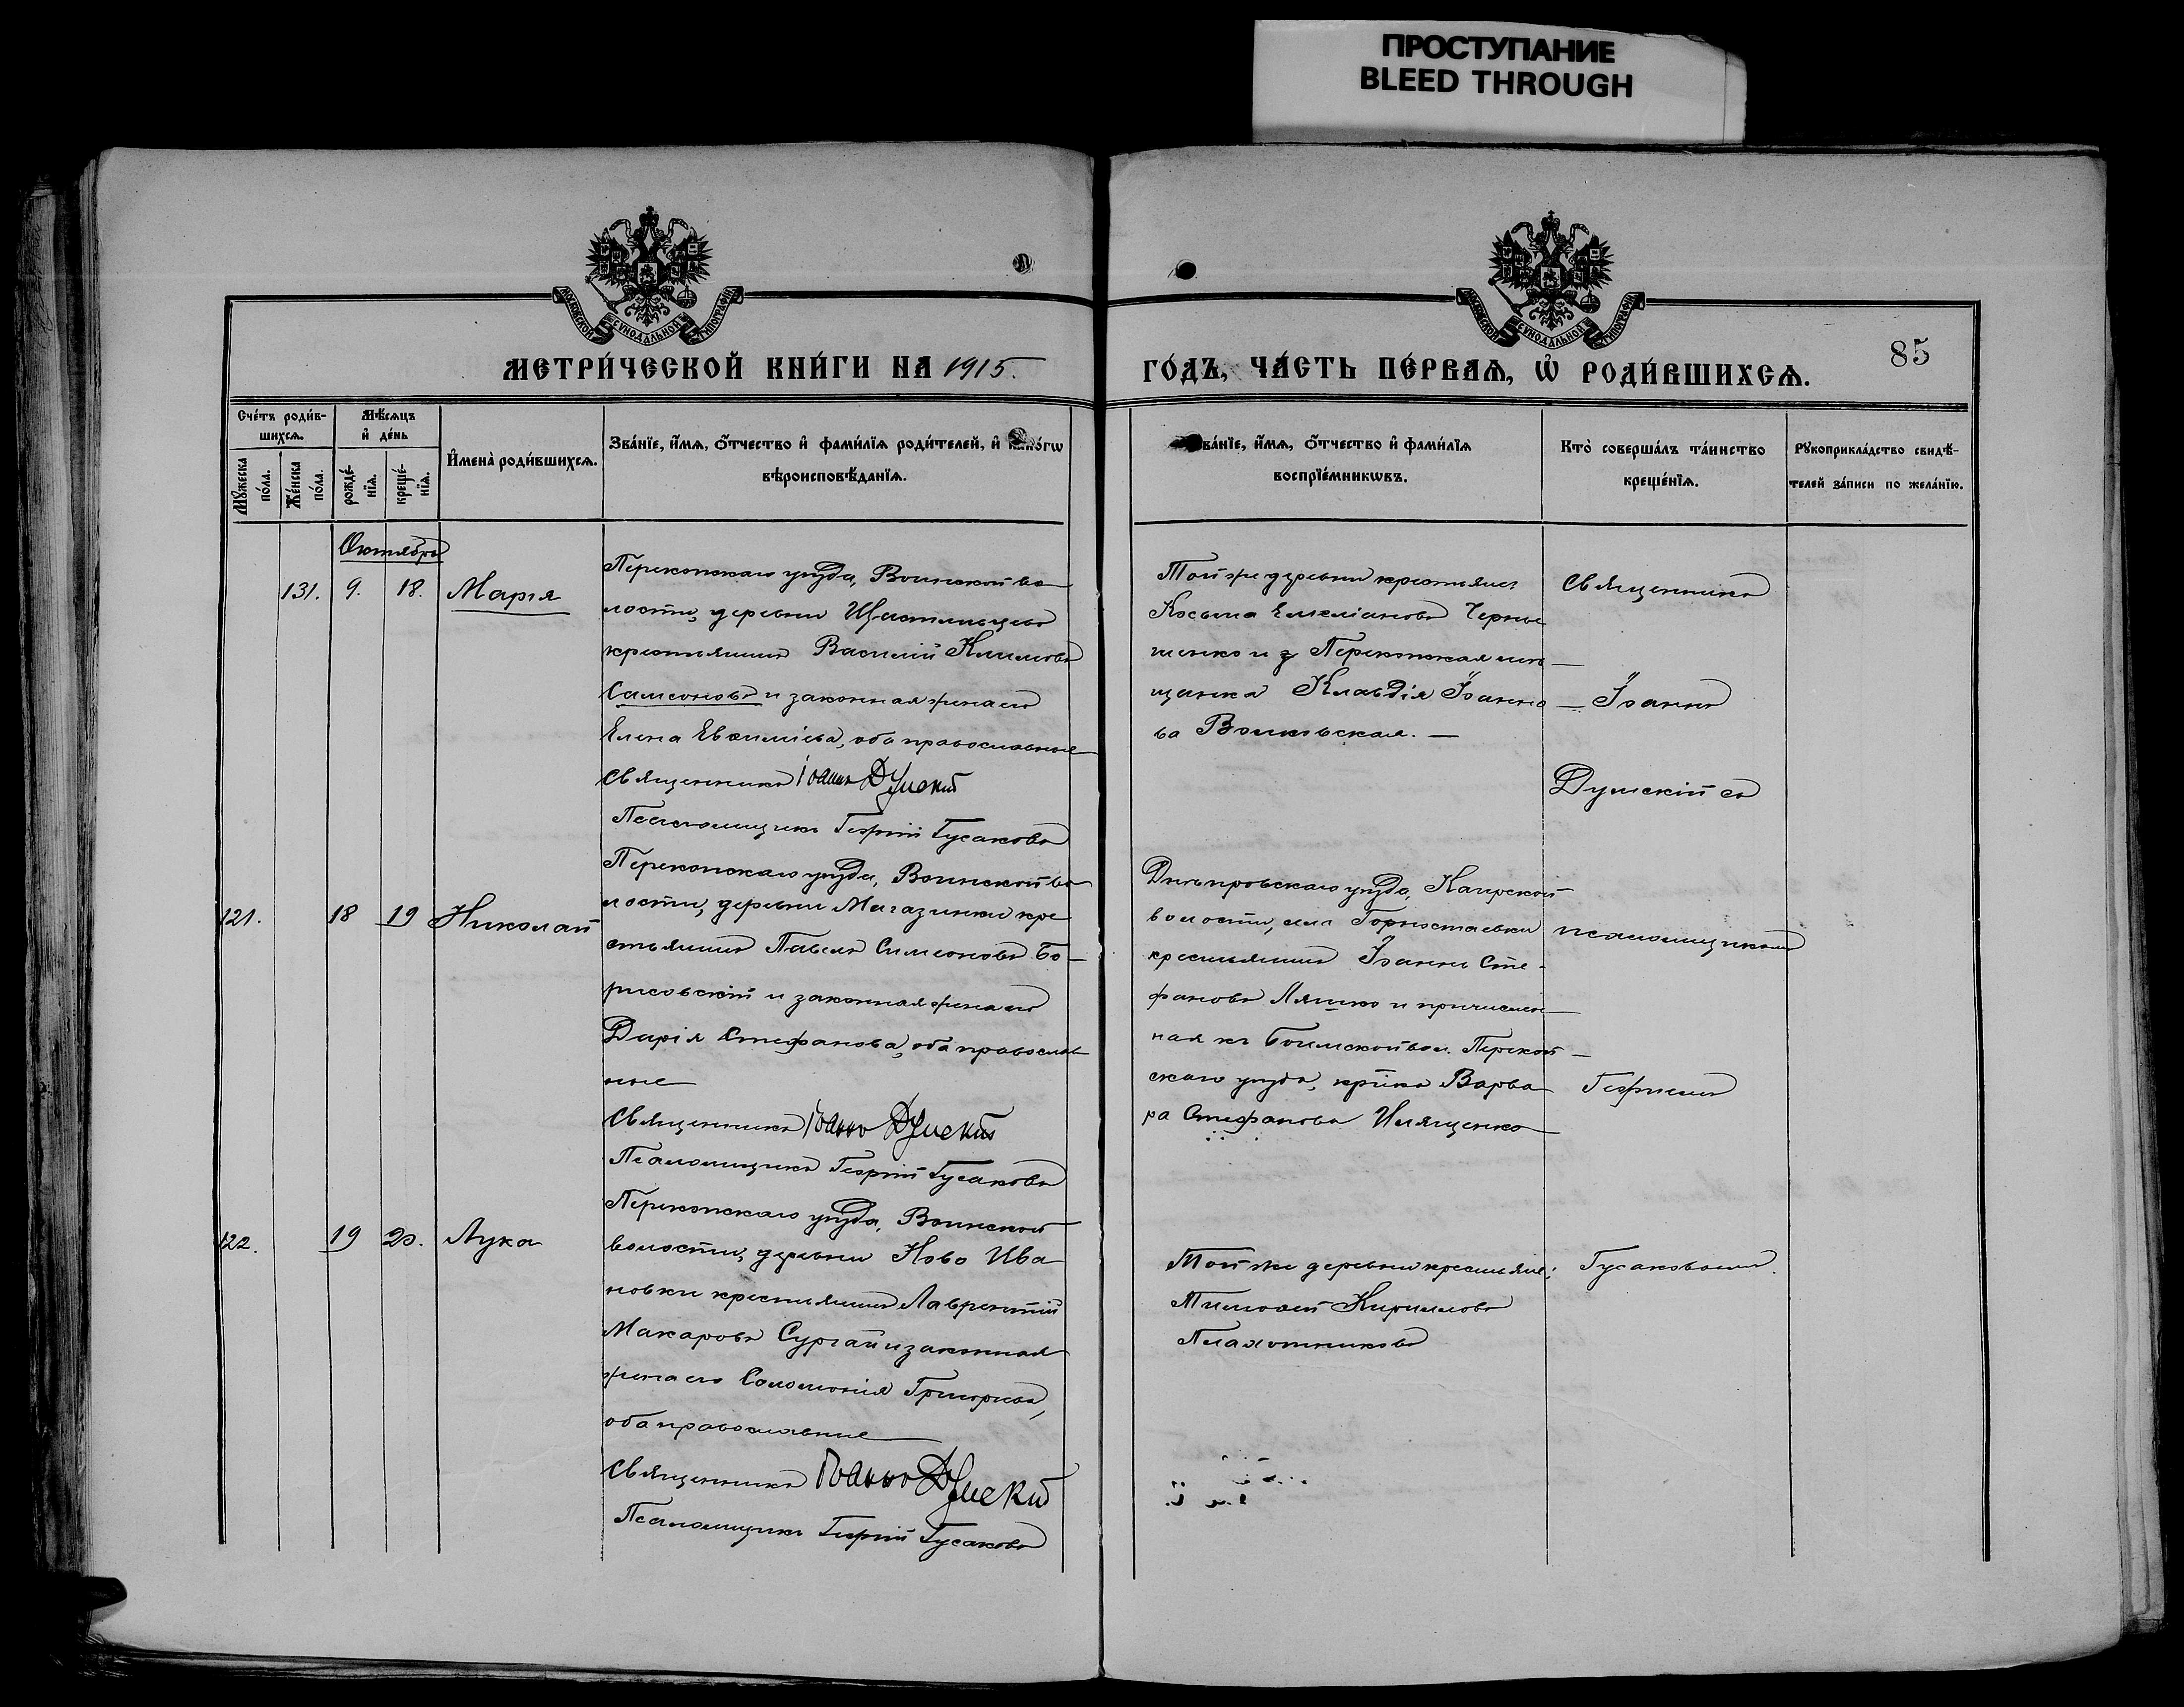 ПРОСТУПАНИЕ
BLEED THROUGH
МОСКОВСКОЙ СѴНОДАЛЬНОЙ ТИПОГРАФІИ
МОСКОВСКОЙ СѴНОДАЛЬНОЙ ТИПОГРАФІИ
85
МЕТРИ́ЧЕСКОЙ КНИ́ГИ НА 1915.
ГО́ДЪ, ЧА́СТЬ ПЕ́РВАѦ, Ѡ҆ РОДИ́ВШИХСѦ.
Сче́тъ роди́в-
шихсѧ.
Мꙋ́жеска по́ла.
Же́нска по́ла.
Мѣ́сѧцъ
и҆ де́нь
рожде́-
нїѧ.
креще́-
нїѧ.
И҆мена̀ роди́вшихсѧ.
Зва́нїе, и҆́мѧ, ѻ҆́тчество и҆ фами́лїѧ роди́телей, и҆ како́гѡ
вѣроисповѣ́данїѧ.
Зва́нїе, и҆́мѧ, ѻ҆́тчество и҆ фами́лїѧ
воспрїе́мникѡвъ.
Кто̀ соверша́лъ та́инство
креще́нїѧ.
Рꙋкоприкла́дство свидѣ́-
телей за́писи по жела́нїю.
Октябрь
131. 9. 18. Марія
Перекопскаго уѣзда, Воинской во
лости, деревни Щастливцево
крестьянинъ Василій Климовъ
Самсоновъ и законная жена его
Елена Евѳиміева, оба православные
Священникъ Іоаннъ Думскій
Псаломщикъ Георгій Гусаковъ
Той же деревни крестьянинъ
Косьма Емеліановъ Черны
шенко и Перекопская мѣ-
щанка Клавдія Іоанно
ва Волковская. —
Священникъ
Іоаннъ
Думскій съ
121. 18 19 Николай
Перекопскаго уѣзда, Воинской во
лости, деревни Магазинки кре
стьянинъ Павелъ Симеоновъ Бо-
рисовскій и законная жена его
Дарія Стефанова, оба православ
ные
Священникъ Іоаннъ Думскій
Псаломщикъ Георгій Гусаковъ
Днѣпровскаго уѣзда, Каирской
волости, села Горностаевки
крестьянинъ Іоаннъ Сте-
фановъ Ляшко и причислен
ная къ Воинской вол. Перекоп-
скаго уѣзда, кр-ка Варва
ра Стефанова Илященко
псаломщикомъ
Георгіемъ
122. 19 20. Лука
Перекопскаго уѣзда, Воинской
волости, деревни Ново Ива
новки крестьянинъ Лаврентій
Макаровъ Сургай и законная
жена его Соломонія Григорьева,
оба православные
Священникъ Іоаннъ Думскій
Псаломщикъ Георгій Гусаковъ
Той же деревни крестьян.
Тимоѳей Кирилловъ
Плахотниковъ
Гусаковымъ.